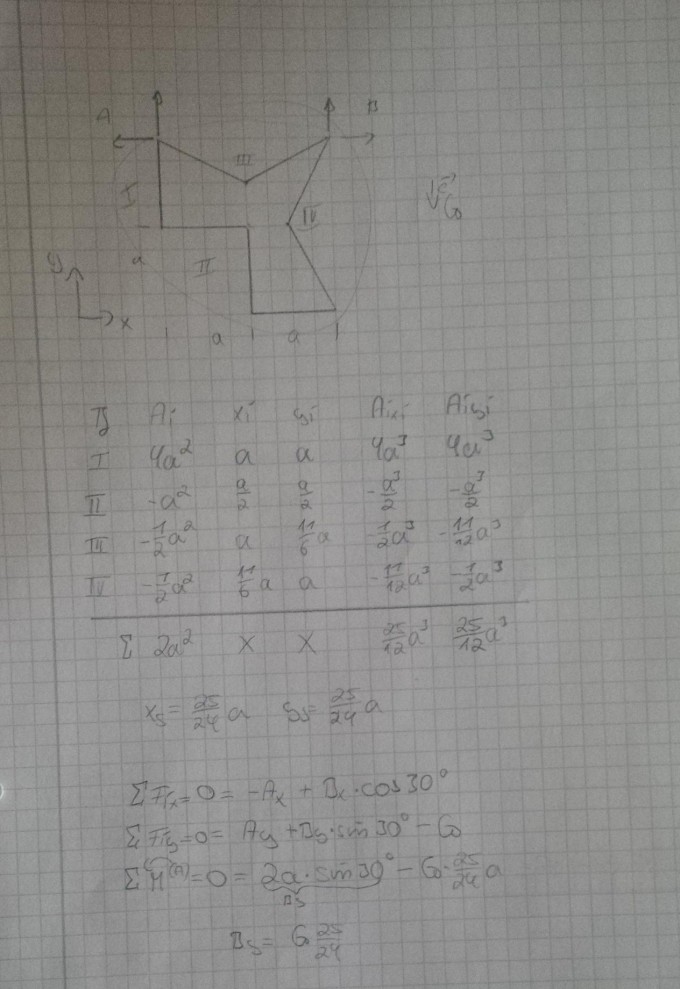 A B
III
I IV G
a II
y
x a a
Tj Ai xi yi Aixi Aiyi
I 4a² a a 4a³ 4a³
II -a² a/2 a/2 -a³/2 -a³/2
III -1/2a² a 11/6a -1/2a³ -11/12a³
IV -1/2a² 11/6a a -11/12a³ -1/2a³
Σ 2a² X X 25/12a³ 25/12a³
xs = 25/24 a ys = 25/24 a
ΣFix = 0 = -Ax + Bx · cos30°
ΣFiy = 0 = Ay + By · sin30° - G
ΣM(A) = 0 = 2a · sin30° - G · 25/24 a
By
By = G 25/24